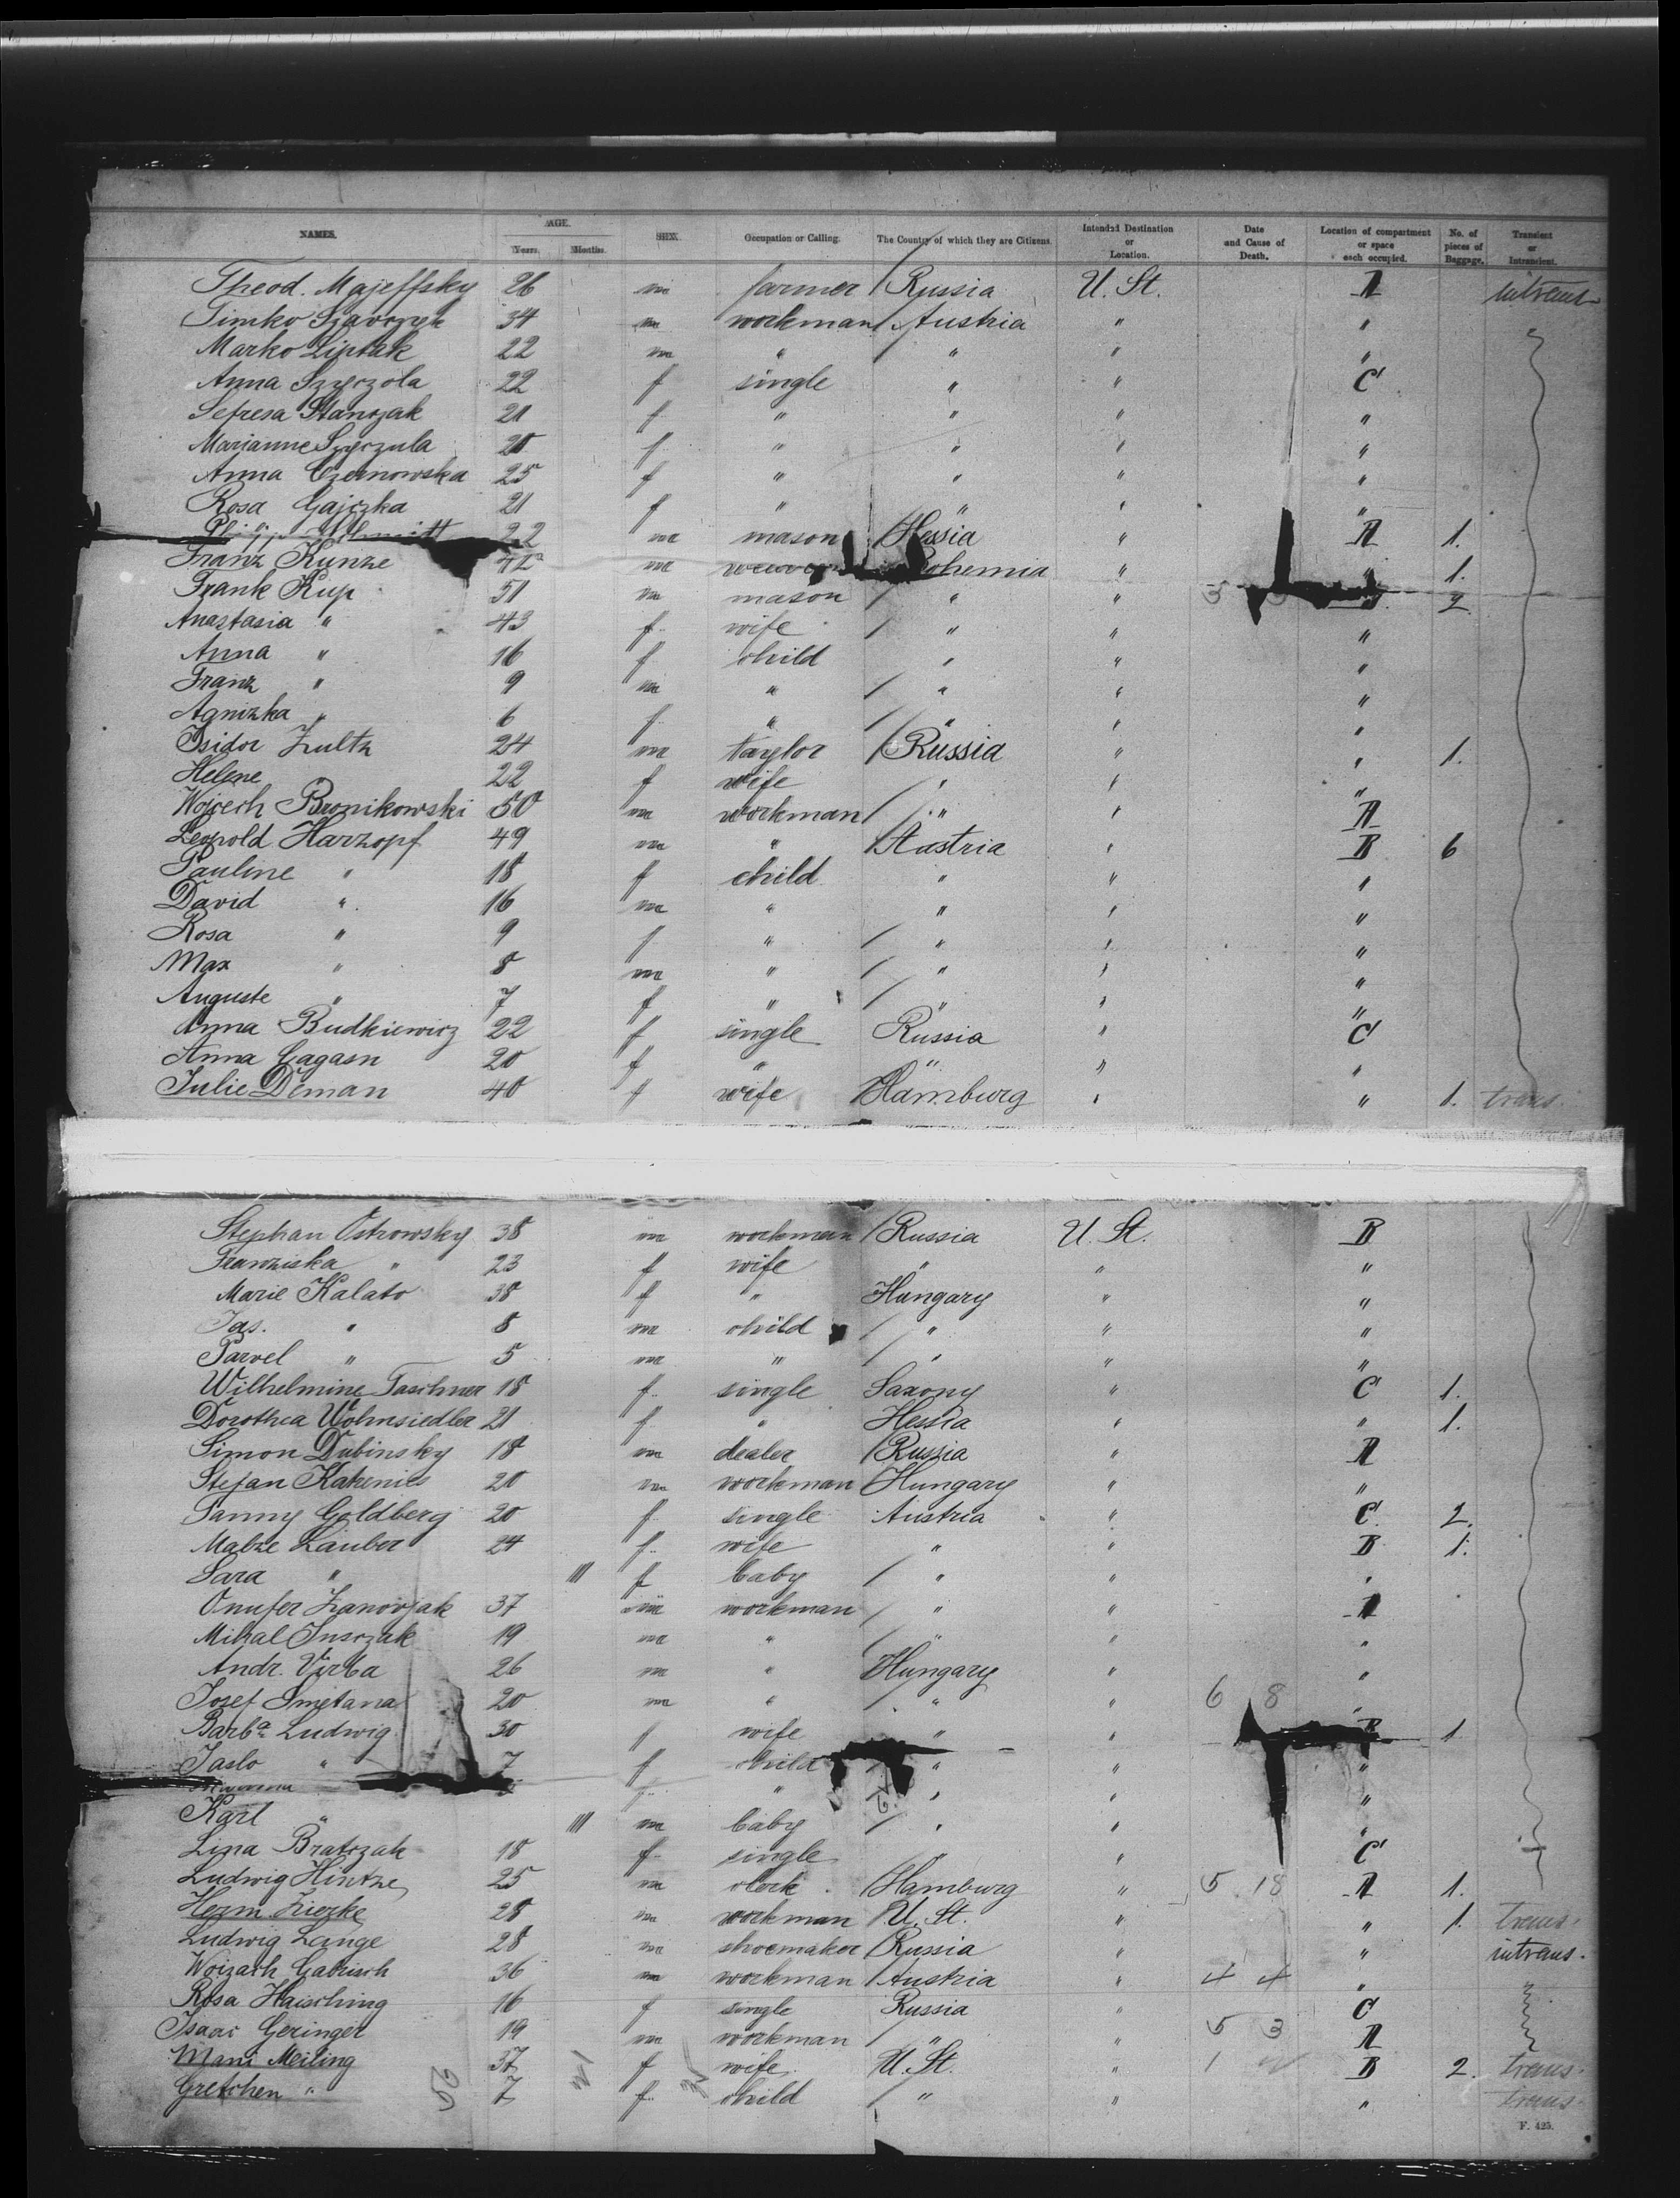 NAMES. AGE. Years. Months. SEX. Occupation or Calling. The Country of which they are Citizens. Intended Destination or Location. Date and Cause of Death. Location of compartment or space each occupied. No. of pieces of Baggage. Transient or Intransient.
Theod. Majeffsky 26 m farmer Russia U. St. A intrans
Timko 34 m workman Austria " "
Marko Liptak 22 m " " " "
Anna Szyrzola 22 f single " " C
Stanczak 21 f " " " "
Marianne Szyrzula 20 f " " " "
Anna Czernowska 25 f " " " "
Rosa Gajczka 21 f " " " "
22 m mason Hessia " A 1.
Franz Kunze 42 m Bohemia " 1.
Frank Kup 51 m mason " " 2
Anastasia " 43 f wife " " "
Anna " 16 f child " " "
Franz " 9 m " " " "
Agnizka " 6 f " " " "
Isidor Zultz 24 m taylor Russia " " 1.
Helene 22 f wife " " "
Wojcech Bronikowski 50 m workman " " A
Leopold Harzopf 49 m " Austria " B 6
Pauline " 18 f child " " "
David " 16 m " " " "
Rosa " 9 f " " " "
Max " 8 m " " " "
Auguste " 7 f " " " "
Anna Budkiewicz 22 f single Russia " C
Anna Gagasn 20 f " " " "
Julie Deman 40 f wife Hamburg " " 1. trans.
Stephan Ostrowsky 38 m workman Russia U. St. B
Franziska " 23 f wife " " "
Marie Kalato 38 f " Hungary " "
Jas. " 8 m child " " "
Parvel " 5 m " " " "
Wilhelmine Taschner 18 f single Saxony " C 1.
Dorothea Wohnsiedler 21 f " Hessia " " 1.
Simon Dubinsky 18 m dealer Russia " A
Stefan 20 m workman Hungary " "
Fanny Goldberg 20 f single Austria " C 2.
Zauber 24 f wife " " B 1.
Sara " III f baby " " "
Onufer 37 m workman " " A
Mihal 19 m " " " "
Andr. Virba 26 m " Hungary " "
Josef Smetana 20 m " " " 6 8 "
Barba Ludwig 30 f wife " " B 1
Jaslo " 7 f child " " "
f " " " "
Karl " III m baby " " "
Lina Bratczak 18 f single " " C
Ludwig Hintze 25 m clerk Hamburg " 5 18 A 1.
Herm. Zierke 28 m workman U. St. " " 1. trans.
Ludwig Lange 28 m shoemaker Russia " " intrans.
Woizach Gabrisch 36 m workman Austria " 4 4 "
Rosa Haisching 16 f single Russia " C
Isaac Geringer 19 m workman " " 5 3 A
Meiling 37 f wife U. St. " 1 B 2. trans.
Gretchen " 7 f child " " " trans.
F. 425.